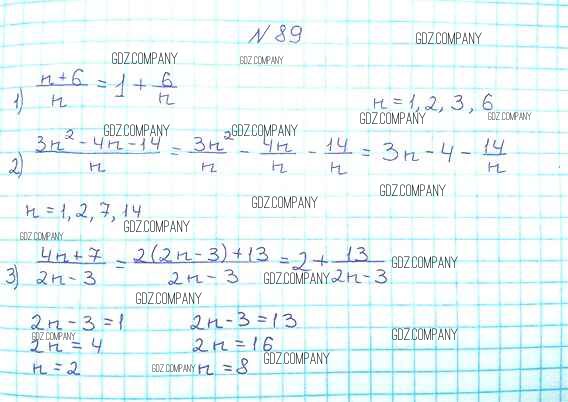 № 89
GDZ.COMPANY GDZ.COMPANY GDZ.COMPANY
1) (n+6)/n = 1 + 6/n
n = 1, 2, 3, 6
GDZ.COMPANY GDZ.COMPANY
GDZ.COMPANY GDZ.COMPANY
2) (3n² - 4n - 14)/n = 3n²/n - 4n/n - 14/n = 3n - 4 - 14/n
GDZ.COMPANY
n = 1, 2, 7, 14
GDZ.COMPANY
GDZ.COMPANY GDZ.COMPANY
3) (4n+7)/(2n-3) = (2(2n-3)+13)/(2n-3) = 2 + 13/(2n-3)
GDZ.COMPANY
GDZ.COMPANY
GDZ.COMPANY
2n-3=1 2n-3=13
GDZ.COMPANY GDZ.COMPANY
2n=4 2n=16
GDZ.COMPANY GDZ.COMPANY
n=2 n=8